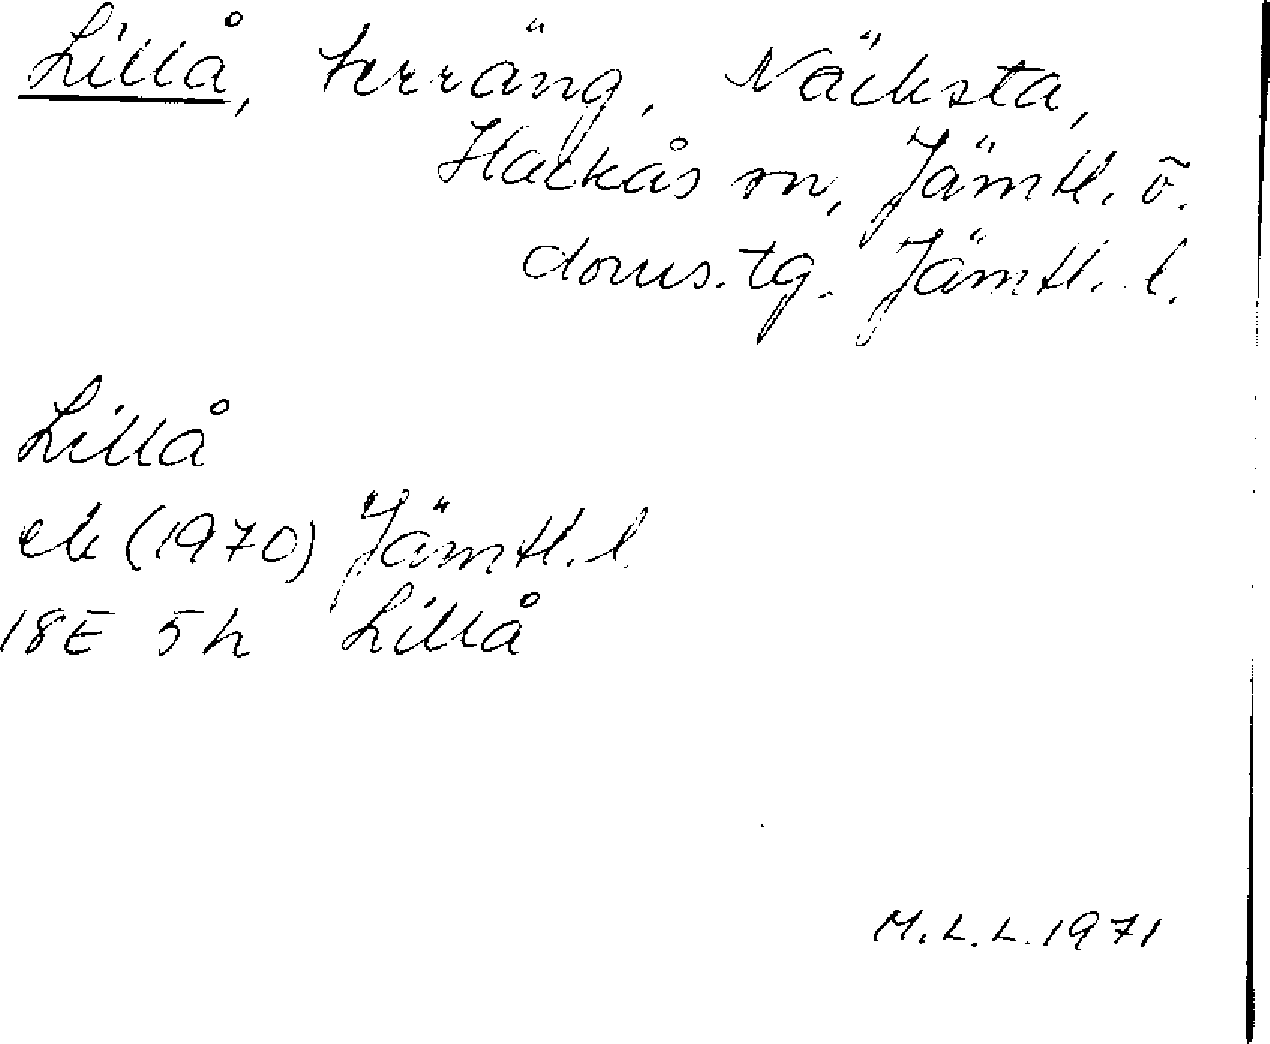 Lillå, terräng, Näcksta,
Hackås sn, Jämtl. ö.
doms.tg. Jämtl. l.
Lillå
ek (1970) Jämtl. l.
18E 5h Lillå
M.L.L. 1971